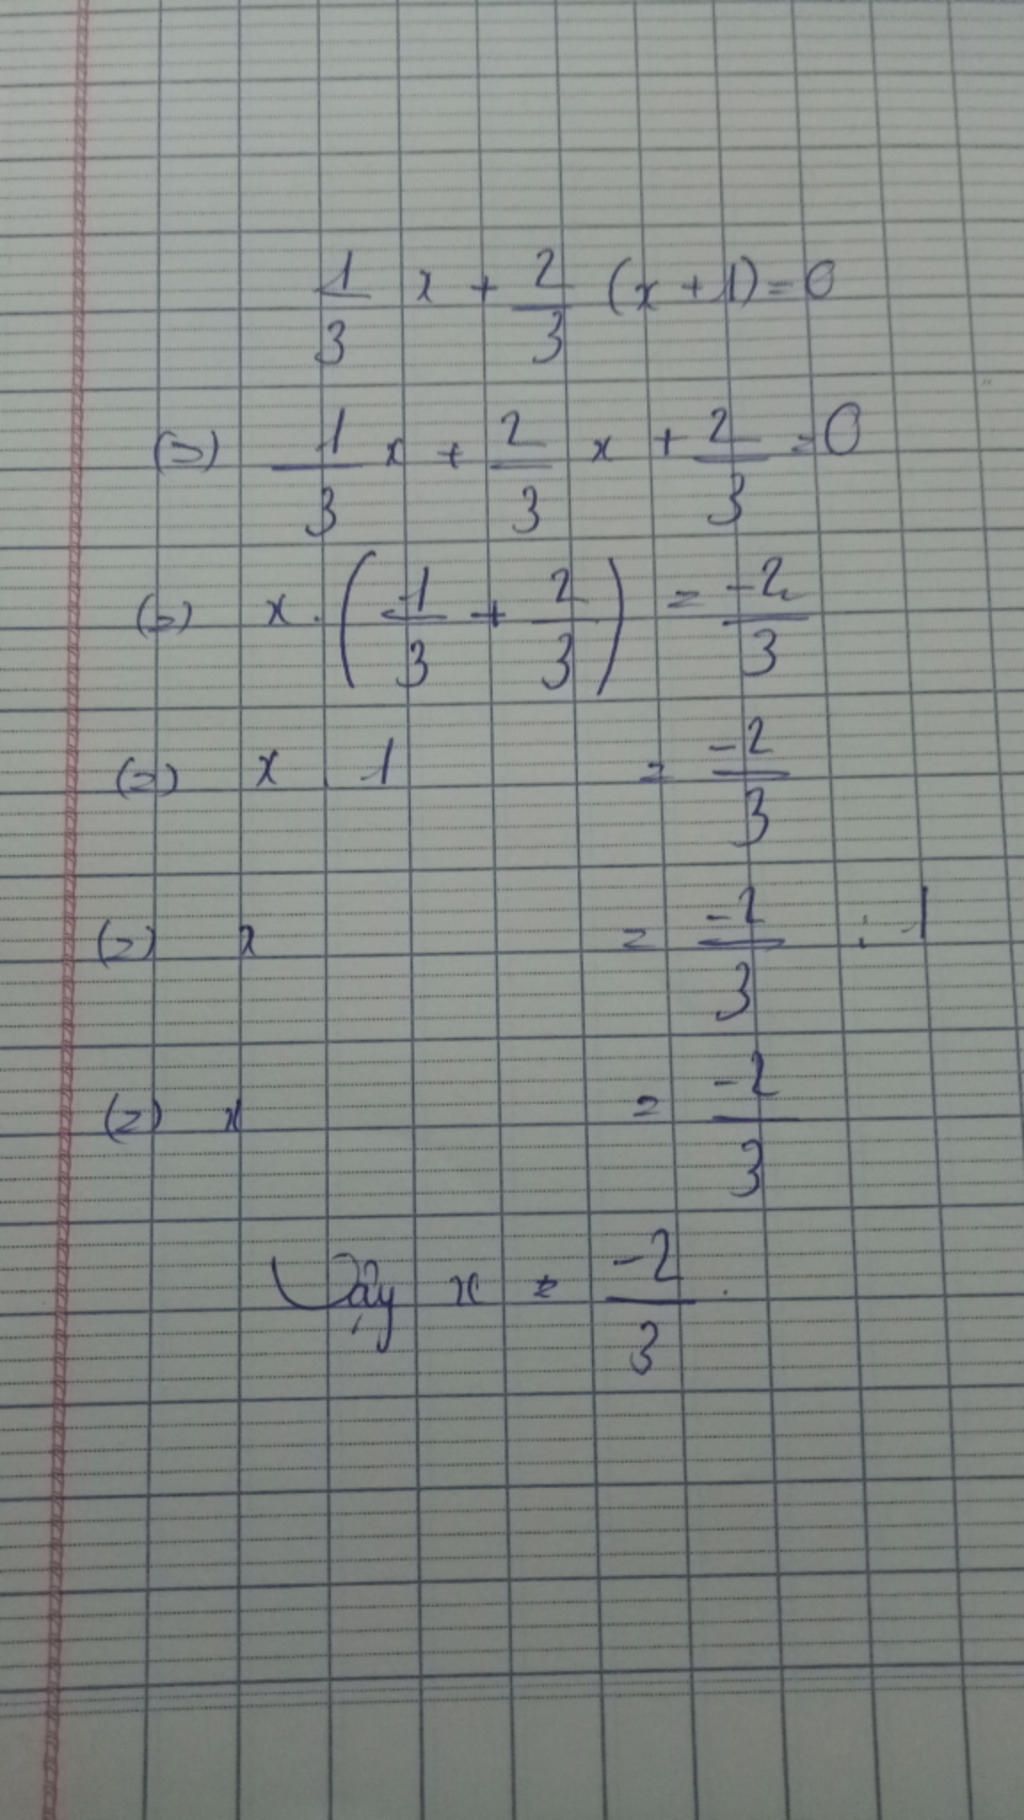 1/3 x + 2/3 (x + 1) = 0
(=) 1/3 x + 2/3 x + 2/3 = 0
(=) x . (1/3 + 2/3) = -2/3
(=) x . 1 = -2/3
(=) x = -2/3 : 1
(=) x = -2/3
Vậy x = -2/3 .